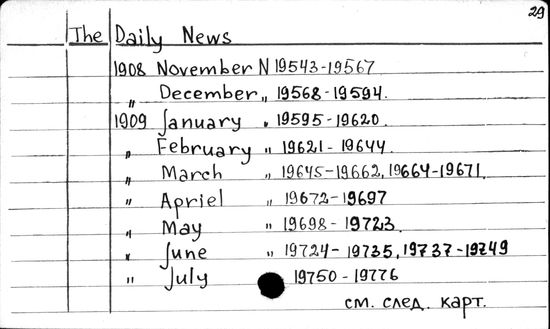 29
The Daily News
1908 November N 19543-19567
" December " 19568-19594.
1909 January " 19595-19620.
" February " 19621-19644.
" March " 19645-19662, 19664-19671.
" Apriel " 19672-19697
" May " 19698-19723.
" June " 19724-19735, 19737-19749
" July 19750-19776
см. след. карт.